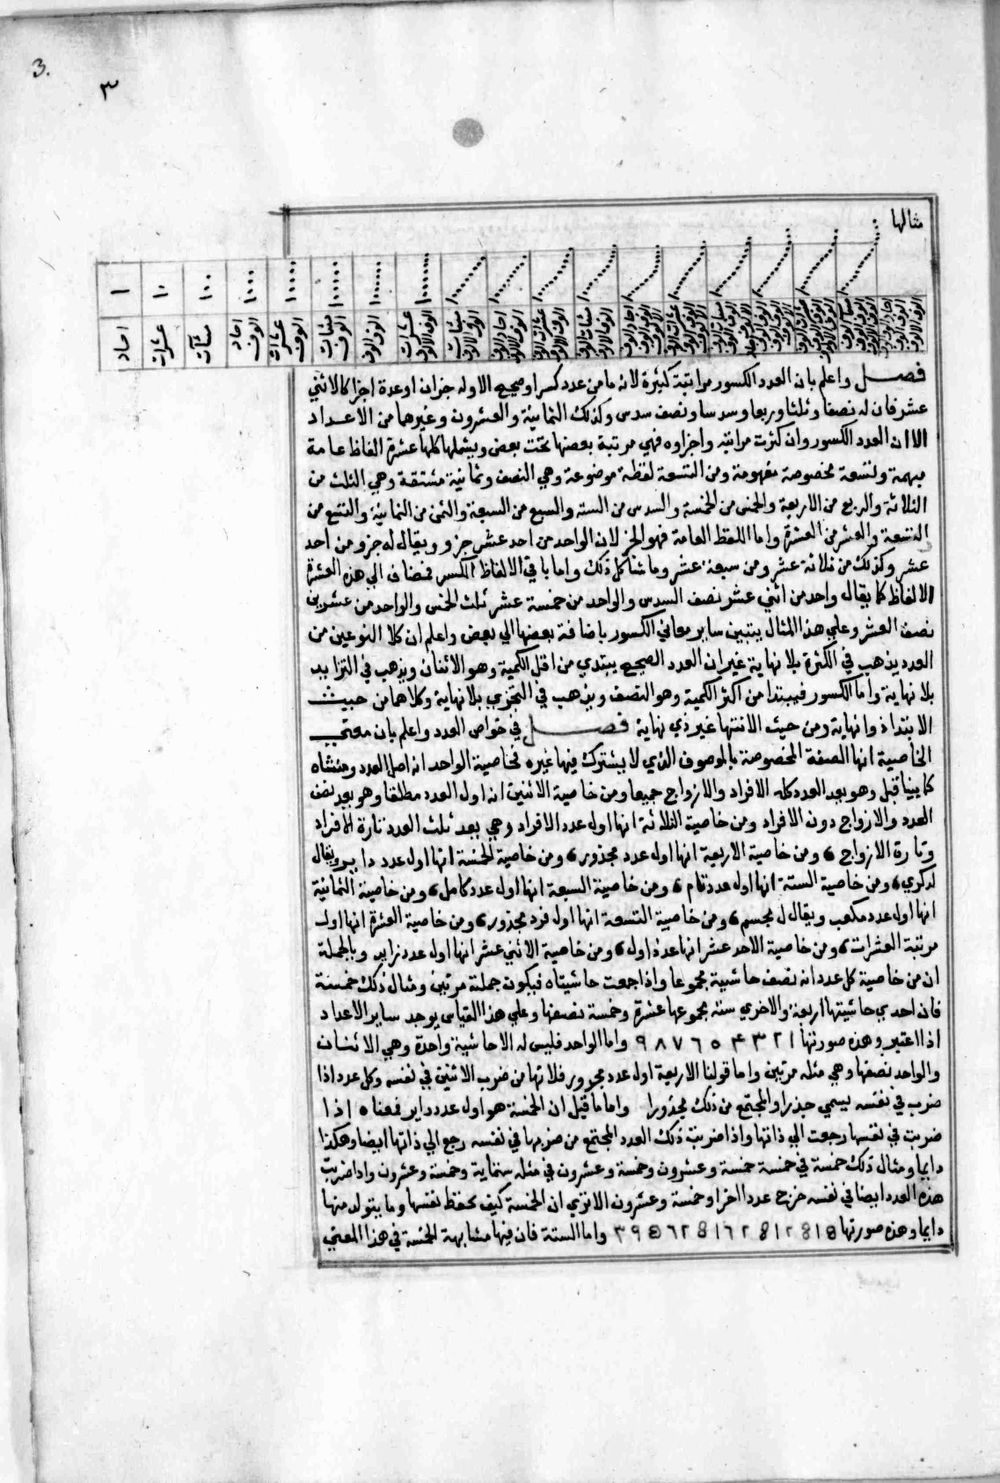 3.
٣
مثالها
١ ١٠ ١٠٠ ١٠٠٠ ١٠٠٠٠ ١٠٠٠٠٠ ١٠٠٠٠٠٠ ١٠٠٠٠٠٠٠
احاد عشرات مئات احاد الوف عشرات الوف مئات الوف الوف الوف عشرات الوف الالوف
فصل واعلم بان العدد الكسور مراتبة كثيرة لانه ما من عدد كسر او صحيح الا وله جزوان او عدة اجزا كالاثني
عشر فان له نصفا وثلثا وربعا وسدسا ونصف سدس وكذلك الثمانية والعشرون وغيرهما من الاعداد
الا ان العدد الكسور وان كثرت مراتبه واجزاوه فهي مرتبة بعضها تحت بعض ويشملها كلها عشرة الفاظ عامة
مبهمة وتسعة مخصوصة مفهومة ومن التسعة لفظة موضوعة وهي النصف وثمانية مشتقة وهي الثلث من
الثلاثة والربع من الاربعة والخمس من الخمسة والسدس من الستة والسبع من السبعة والثمن من الثمانية والتسع من
التسعة والعشر من العشرة واما اللفظ العامة فهو الجز لان الواحد من احد عشر جزو ويقال له جزو من احد
عشر وكذلك من ثلاثة عشر ومن سبعة عشر وما شاكل ذلك واما باقي الالفاظ الكسر فمضاف الي هذه العشرة
الالفاظ كما يقال واحد من اثني عشر نصف السدس والواحد من خمسة عشر ثلث الخمس والواحد من عشرين
نصف العشر وعلي هذا المثال يتبين ساير معاني الكسور باضافة بعضها الي بعض واعلم ان كلا النوعين من
العدد يذهب في الكثرة بلا نهاية غير ان العدد الصحيح يبتدي من اقل الكمية وهو الاثنان ويذهب في التزايد
بلا نهاية واما الكسور فيبتدا من اكثر الكمية وهو النصف ويذهب في التجزي بلا نهاية وكلاهما من حيث
الابتدا ذوا نهاية ومن حيث الانتها غير ذي نهاية فصل في خواص العدد واعلم بان معني
الخاصية انها الصفة المخصوصة بالموصوف الذي لا يشترك فيها غيره فخاصية الواحد انه اصل العدد ومنشاه
كما بينا قبل وهو بعد العدد كله الافراد والازواج جميعا ومن خاصية الاثنين انه اول العدد مطلقا وهو بعد نصف
العدد والازواج دون الافراد ومن خاصية الثلاثة انها اول عدد الافراد وهي بعد ثلث العدد تارة الافراد
وتارة الازواج ، ومن خاصية الاربعة انها اول عدد مجذور ، ومن خاصية الخمسة انها اول عدد داير ويقال
له كري ، ومن خاصية الستة انها اول عدد تام ، ومن خاصية السبعة انها اول عدد كامل ، ومن خاصية الثمانية
انها اول عدد مكعب ويقال له مجسم ، ومن خاصية التسعة انها اول فرد مجذور ، ومن خاصية العشرة انها اول
مرتبة العشرات ، ومن خاصية الاحد عشر انها عدد اول ، ومن خاصية الاثني عشر انها اول عدد زايد وبالجملة
ان من خاصية كل عدد انه نصف حاشية مجموعا واذا جمعت حاشيتاه فيكون جملته مرتين ومثال ذلك خمسة
فان احدي حاشيتها اربعة والاخري ستة مجموعها عشرة وخمسة نصفها وعلي هذا القياس يوجد ساير الاعداد
اذا اعتبر وهذه صورتها ١ ٢ ٣ ۴ ٥ ٦ ٧ ٨ ٩ واما الواحد فليس له الا حاشية واحدة وهي الاثنان
والواحد نصفها وهي مثله مرتين واما قولنا الاربعة اول عدد مجرور فلانها من ضرب الاثنين في نفسه وكل عدد اذا
ضرب في نفسه يسمي جذرا والمجتمع من ذلك مجذورا واما ما قيل ان الخمسة هو اول عدد داير فمعناه اذا
ضربت في نفسها رجعت الي ذاتها واذا ضربت ذلك العدد المجتمع من ضربها في نفسه رجع الي ذاتها ايضا وهكذا
دايما ومثال ذلك خمسة في خمسة خمسة وعشرون وخمسة وعشرون في مثله ستماية وخمسة وعشرون واذا ضربت
هذه العدد ايضا في نفسه خرج عددا اخر او خمسة وعشرون الا تري ان الخمسة كيف تحفظ نفسها وما يتولد منها
دايما وهذه صورتها واما الستة فان فيها مشابهة الخمسة في هذا المعني